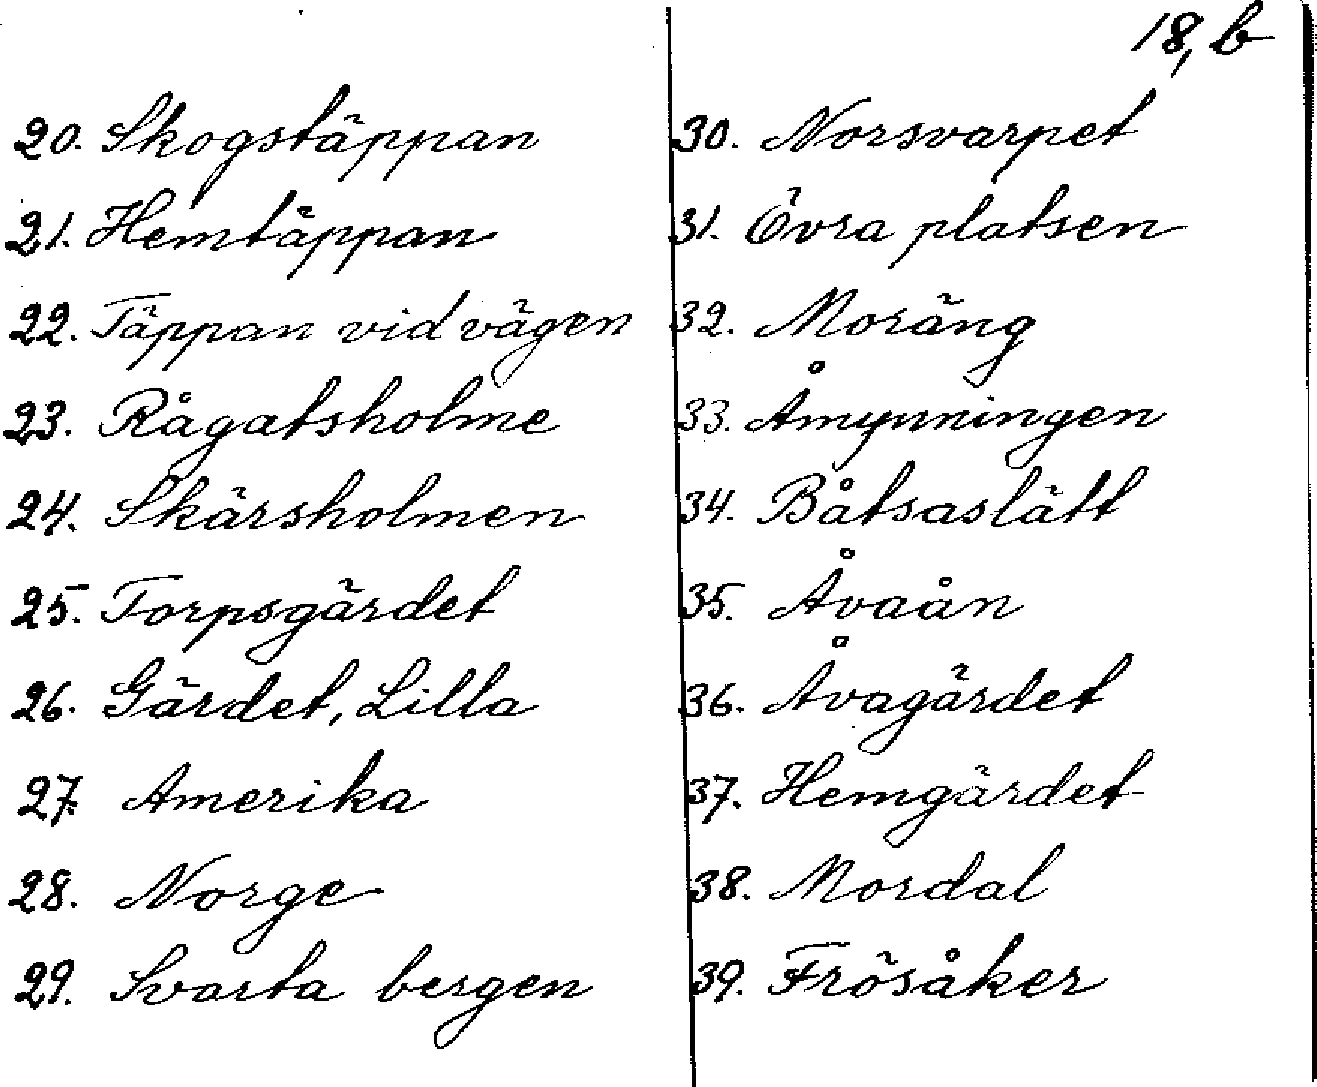 18, b
20. Skogstäppan
21. Hemtäppan
22. Täppan vid vägen
23. Rågatsholme
24. Skärsholmen
25. Torpsgärdet
26. Gärdet, Lilla
27. Amerika
28. Norge
29. Svarta bergen
30. Norsvarpet
31. Övra platsen
32. Moräng
33. Åmynningen
34. Båtsaslätt
35. Åvaån
36. Åvagärdet
37. Hemgärdet
38. Mordal
39. Frösåker